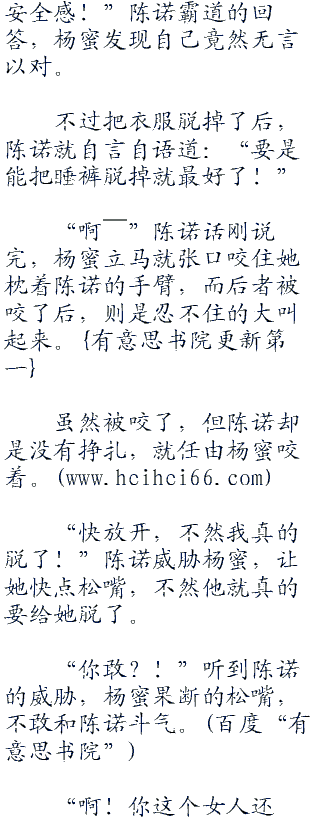 安全感！”陈诺霸道的回
答，杨蜜发现自己竟然无言
以对。
不过把衣服脱掉了后，
陈诺就自言自语道：“要是
能把睡裤脱掉就最好了！”
“啊￣”陈诺话刚说
完，杨蜜立马就张口咬住她
枕着陈诺的手臂，而后者被
咬了后，则是忍不住的大叫
起来。{有意思书院更新第
一}
虽然被咬了，但陈诺却
是没有挣扎，就任由杨蜜咬
着。(www.hcihci66.com)
“快放开，不然我真的
脱了！”陈诺威胁杨蜜，让
她快点松嘴，不然他就真的
要给她脱了。
“你敢？！”听到陈诺
的威胁，杨蜜果断的松嘴，
不敢和陈诺斗气。(百度“有
意思书院”)
“啊！你这个女人还